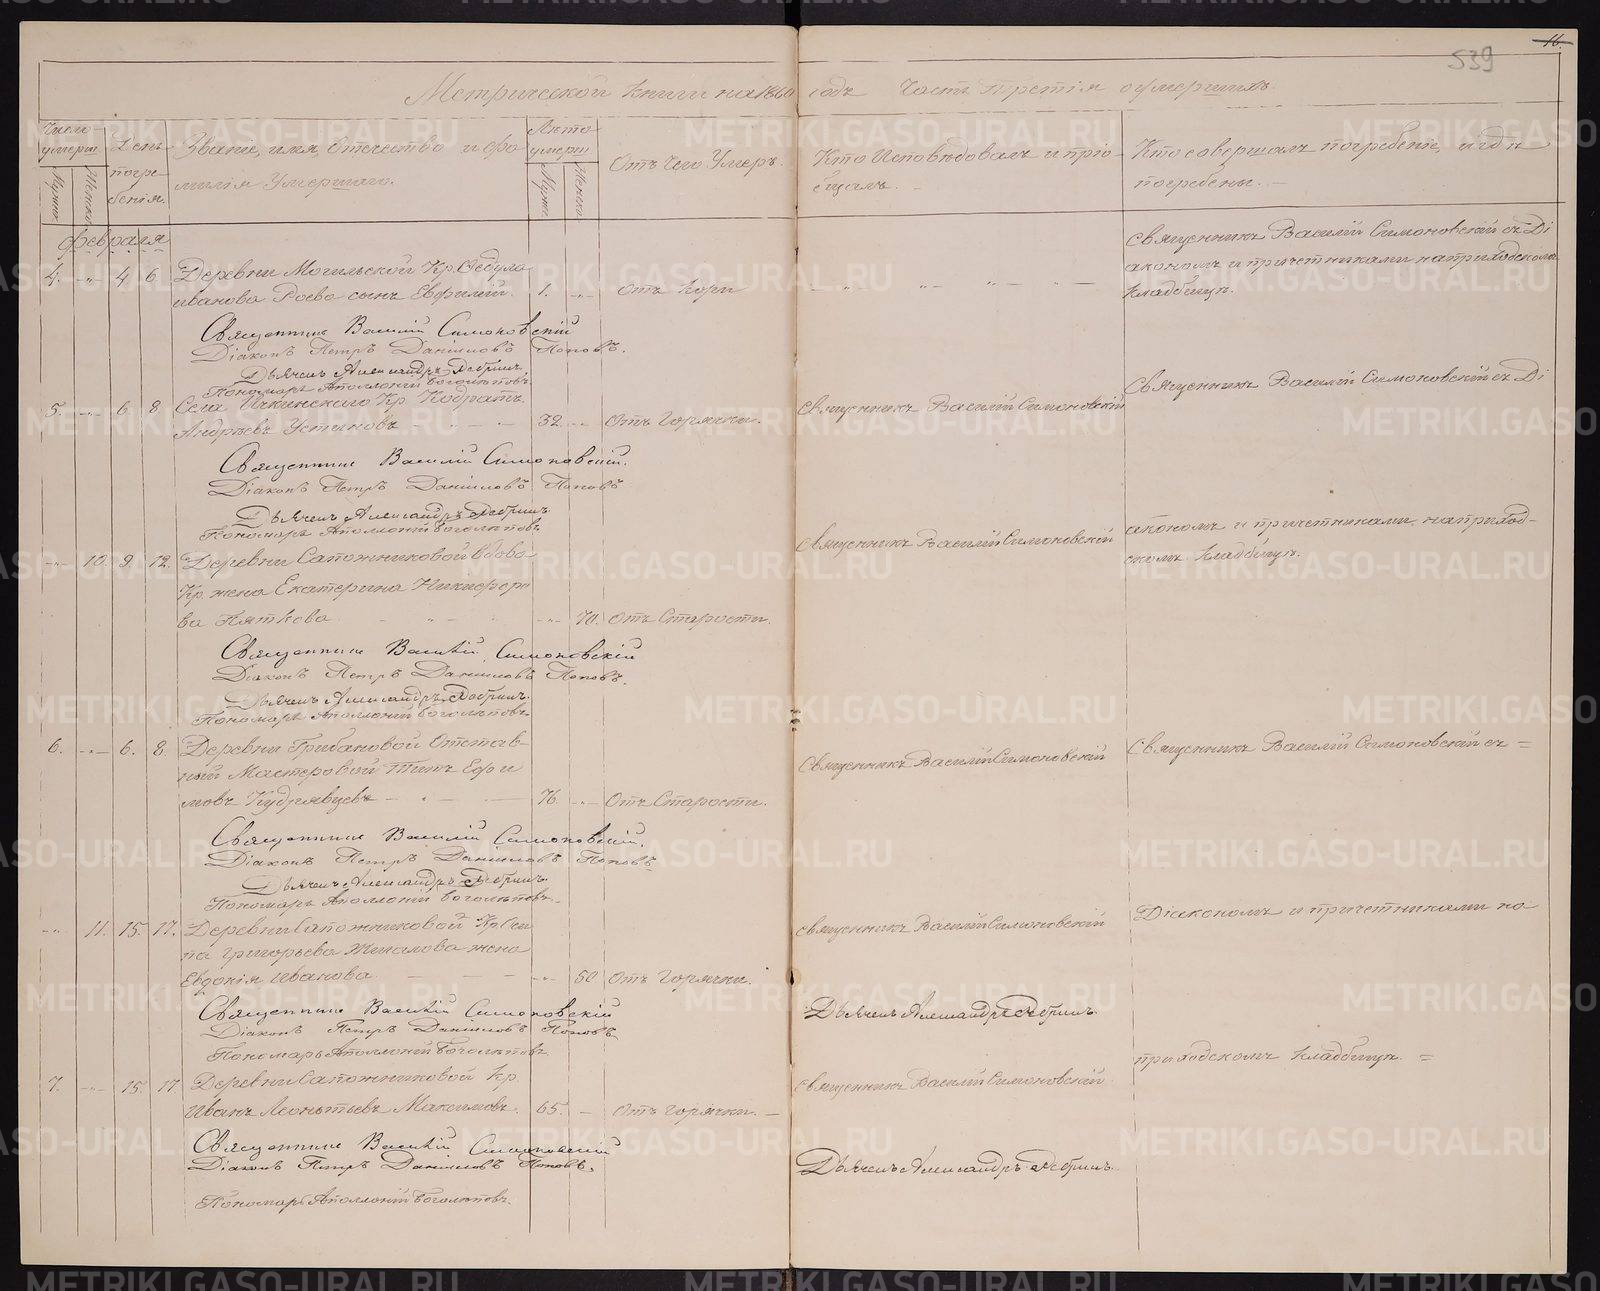 539
16.
Метрической книги на 1860 годъ Часть третія о умершихъ
Число умерш
День погребенія.
Званіе, имя, Отечество и фамилія Умершаго.
Лѣта умерш
Отъ чего Умеръ.
Кто Исповѣдовалъ и пріобщалъ.
Кто совершалъ погребеніе, и гдѣ погребены.
Мужес
Женск
Мужес
Женска
февраля
4. „ 4 6. Деревни Могильской Кр. Ѳедула
Иванова Роева сынъ Евфимій. 1. „ отъ кори
Священникъ Василій Симоновскій съ Ді
акономъ и причетниками на приходскомъ
кладбищѣ.
Священникъ Василій Симоновскій
Діаконъ Петръ Даніиловъ Поповъ.
Дьячекъ Александръ Дебринъ.
Пономарь Аполлоній Боголѣповъ.
5. „ 6. 8. Села Ичкинскаго Кр. Кодратъ
Андреевъ Устиновъ 32 „ Отъ Горячки.
Священникъ Василій Симоновскій
Священникъ Василій Симоновскій съ Ді
Священникъ Василій Симоновскій.
Діаконъ Петръ Даніиловъ Поповъ
Дьячекъ Александръ Дебринъ.
Пономарь Аполлоній Боголѣповъ.
„ 10. 9. 12. Деревни Сапожниковой Вдова
Кр. жена Екатерина Никифоро
ва Пяткова „ 70. Отъ Старости.
Священникъ Василій Симоновскій
акономъ и причетниками на приход-
скомъ кладбищѣ.
Священникъ Василій Симоновскій
Діаконъ Петръ Даніиловъ Поповъ.
Дьячекъ Александръ Дебринъ.
Пономарь Аполлоній Боголѣповъ.
6. „ 6. 8. Деревни Грибановой Отстав-
ный Мастеровой Титъ Ефи
мовъ Кудрявцевъ 76. „ Отъ Старости.
Священникъ Василій Симоновскій
Священникъ Василій Симоновскій съ =
Священникъ Василій Симоновскій.
Діаконъ Петръ Даніиловъ Поповъ
Дьячекъ Александръ Дебринъ.
Пономарь Аполлоній Боголѣповъ.
„ 11. 15. 17. Деревни Сапожниковой Кр.
Григорьева жена
Евдокія Иванова „ 50 Отъ Горячки.
Священникъ Василій Симоновскій
Діакономъ и причетниками на
Священникъ Василій Симоновскій
Діаконъ Петръ Даніиловъ Поповъ.
Пономарь Аполлоній Боголѣповъ.
Дьячекъ Александръ Дебринъ.
приходскомъ кладбищѣ. =
7. „ 15. 17 Деревни Сапожниковой Кр.
Иванъ Леонтьевъ Максимовъ. 65. — Отъ горячки. —
Священникъ Василій Симоновскій
Священникъ Василій Симоновскій
Діаконъ Петръ Даніиловъ Поповъ.
Пономарь Аполлоній Боголѣповъ.
Дьячекъ Александръ Дебринъ.
METRIKI.GASO-URAL.RU